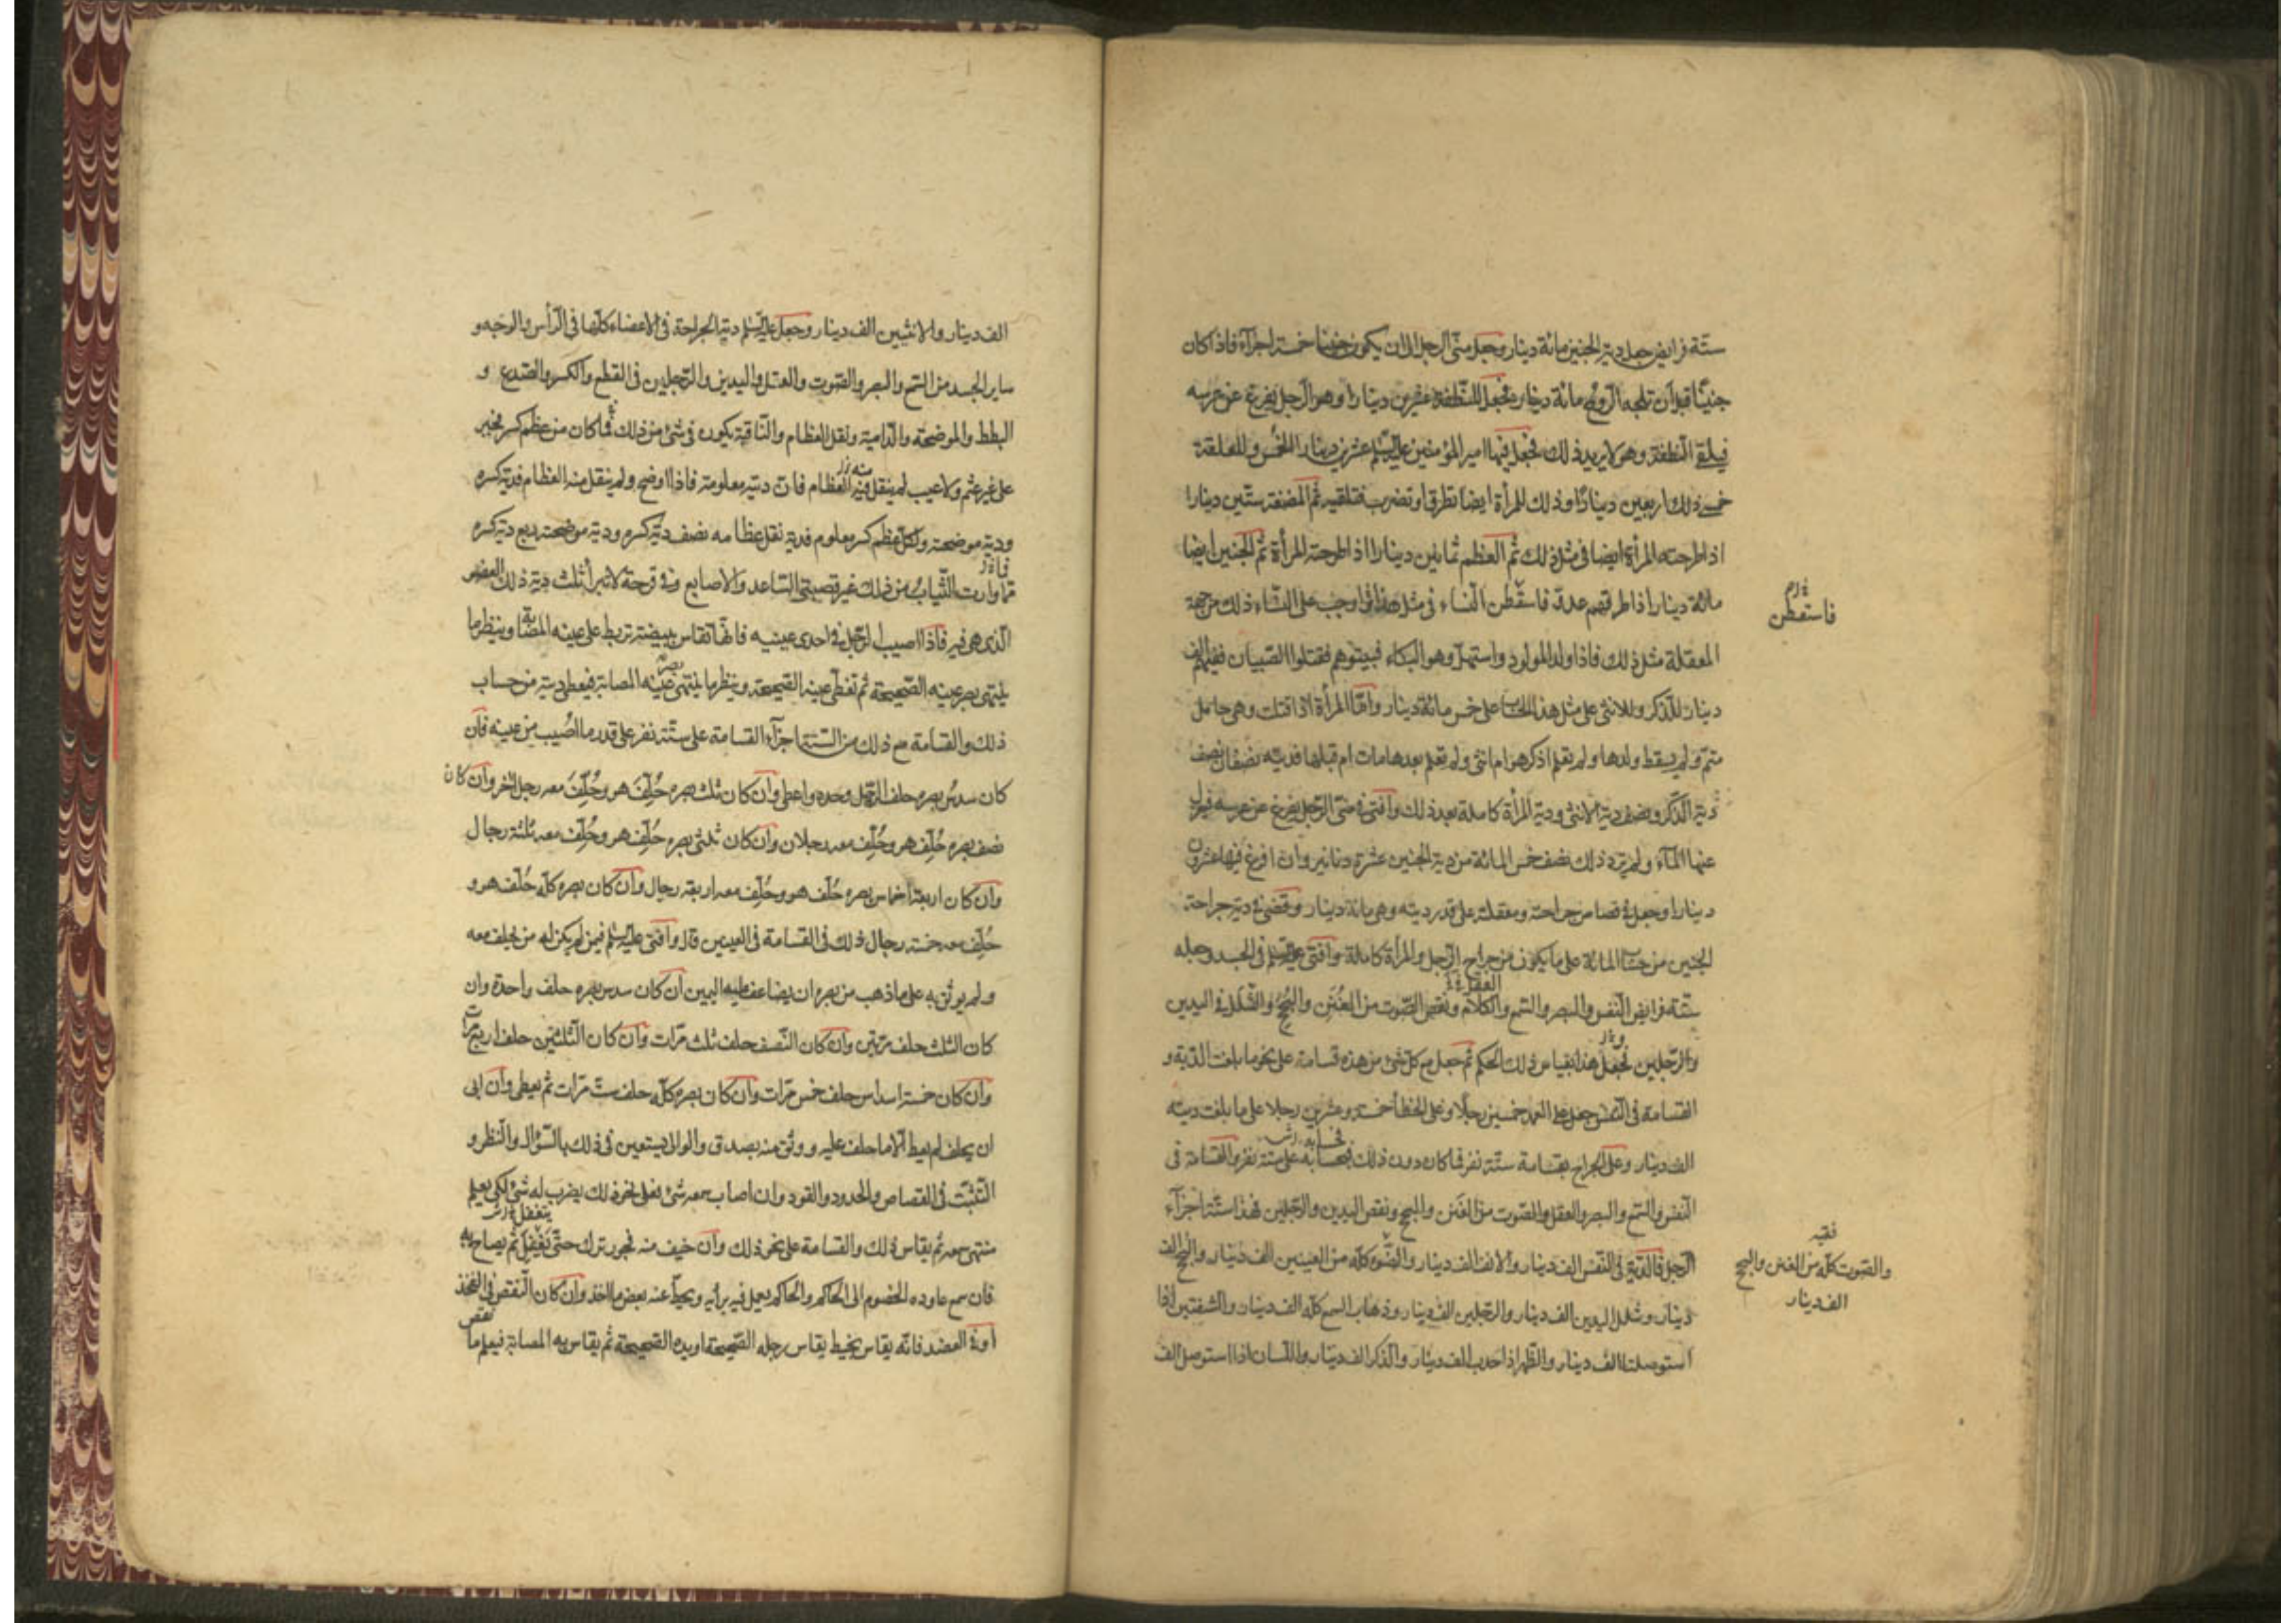 ستّة فرايض جعل دية الجنين مائة دينار وجعل منّى الرجل الى ان يكون جنينا خمسة اجزآء فاذا كان
جنينًا قبل ان تلجه الرّوح مائة دينار فجعل للنّطفة عشرين دينارا وهو الرّجل يفرغ عن عرسه
فيلقى النّطفة وهو لا يريد ذلك فجعل فيها امير المؤمنين عليه السّلم عشرين دينارا الخمس وللعلقة
خمسى ذلك اربعين دينارًا وذلك للمرأة ايضا تطرق او تضرب فتلقيه ثم المضغة ستّين دينارا
اذا طرحته المرأة ايضا فى مثل ذلك ثم العظم ثمانين دينارا اذا طرحته المرأة ثم الجنين ايضا
مائة دينار اذا طرقهم عدوّ فاسقطن النّساء فى مثل هذا اوجب على النّساء ذلك من جهة
فاستقطن
المعقلة مثل ذلك فاذا ولد المولود واستهلّ وهو البكاء فبيّتوهم فقتلوا الصّبيان ففيهم الف
دينار للذّكر وللانثى على مثل هذا الحساب على خمس مائة دينار وامّا المرأة اذا قتلت وهى حامل
متمّ ولم يسقط ولدها ولم يعلم اذكر هو ام انثى ولم يعلم بعدها مات ام قبلها فديته نصفان نصف
دية الذّكر ونصف دية الانثى ودية المرأة كاملة بعد ذلك وافتى فى منّى الرّجل يفرغ عن عرسه فيعزل
عنها المآء ولم ترد ذلك نصف خمس المائة من دية الجنين عشرة دنانير وان افرغ فيها عشرون
دينارا وجعل فى قصاص جراحته ومعقلته على قدر ديته وهى مائة دينار وقضى فى دية جراحة
الجنين من حساب المائة على ما يكون من جراح الرّجل والمرأة كاملة وافتى عليه السّلم فى الجسد وجعله
العقل
ستّة فرايض النّفس والبصر والسّمع والكلام ونقص الصّوت من الغنن والبحح والشّلل فى اليدين
والرّجلين فجعل هذا بقياس ذلك الحكم ثم جعل مع كلّ شئ من هذه قسامة على نحو ما بلغت الدّية و
القسامة فى النّفس جعل على العمد خمسين رجلًا وعلى الخطأ خمسة وعشرين رجلا على ما بلغت ديته
الف دينار وعلى الجراح بقسامة ستّة نفر فما كان دون ذلك فحسابه على ستّة نفر والقسامة فى
النّفس والسّمع والبصر والعقل والصّوت من الغنن والبحح ونقص اليدين والرّجلين فهذا ستّة اجزآء
الرّجل فالدّية فى النّفس الف دينار والانف الف دينار والضّوء كلّه من العينين الف دينار والبحح الف
فقيه
والصّوت كلّه من الغنن والبحح
الف دينار
دينار وشلل اليدين الف دينار والرّجلين الف دينار وذهاب السمع كلّه الف دينار والشفتين اذا
استوصلتا الف دينار والظّهر اذا احدب الف دينار والذّكر الف دينار واللّسان اذا استوصل الف
الف دينار والانثيين الف دينار وجعل عليه السّلم دية الجراحة فى الاعضاء كلّها فى الرّأس والوجه و
ساير الجسد من السّمع والبصر والصّوت والعقل واليدين والرّجلين فى القطع والكسر والصّدع و
البطط والموضحة والدّامية ونقل العظام والنّاقبة يكون فى شئ من ذلك فما كان من عظم كسر فجبر
على غير عثم ولا عيب لم ينقل منه العظام فانّ ديته معلومة فاذا اوضح ولم ينقل منه العظام فدية كسره
ودية موضحته ولكلّ عظم كسر معلوم فدية نقل عظامه نصف دية كسره ودية موضحته ربع دية كسره
ممّا وارت الثّياب من ذلك غير قصبتى السّاعد والاصابع وفى قرحة لا تبرأ ثلث دية ذلك العضو
الّذى هى فيه فاذا اصيب الرّجل فى احدى عينيه فانّها تقاس ببيضة تربط على عينه المصابة وينظر ما
ينتهى بصر عينه الصّحيحة ثم تغطّى عينه الصّحيحة وينظر ما ينتهى بصر عينه المصابة فيعطى ديته من حساب
ذلك والقسامة مع ذلك من السّتة اجزآء القسامة على ستّة نفر على قدر ما اصيب من عينه فان
كان سدس بصره حلف الرّجل وحده واعطى وان كان ثلث بصره حُلِّف هو وحُلِّف معه رجل اخر وان كان
نصف بصره حُلِّف هو وحُلِّف معه رجلان وان كان ثلثى بصره حُلِّف هو وحُلِّف معه ثلثة رجال
وان كان اربعة اخماس بصره حُلِّف هو وحُلِّف معه اربعة رجال وان كان بصره كلّه حُلِّف هو و
حُلِّف معه خمسة رجال ذلك فى القسامة فى العينين قال وافتى عليه السّلم فيمن لم يكن له من يحلف معه
ولم يوثق به على ما ذهب من بصره ان يضاعف عليه اليمين ان كان سدس بصره حلف واحدة وان
كان الثلث حلف مرّتين وان كان النّصف حلف ثلث مرّات وان كان الثّلثين حلف اربع مرّات
وان كان خمسة اسداس حلف خمس مرّات وان كان بصره كلّه حلف ستّ مرّات ثم يعطى وان ابى
ان يحلف لم يعط الّا ما حلف عليه ووثق منه بصدق والوالى يستعين فى ذلك بالسّؤال والنّظر و
التّثبّت فى القصاص والحدود والقود وان اصاب سمعه شئ فعلى نحو ذلك يضرب له شئ لكى يعلم
منتهى سمعه ثم يقاس ذلك والقسامة على نحو ذلك وان خيف منه فجور ترك حتّى يغفل ثم يصاح به
فان سمع عاوده الخصوم الى الحاكم والحاكم يعمل فيه برأيه ويحطّ عنه بعض ما اخذ وان كان النّقص فى الفخذ
او فى العضد فانّه يقاس بخيط يقاس رجله الصّحيحة او يده الصّحيحة ثم يقاس به المصابة فيعلم ما
نقص